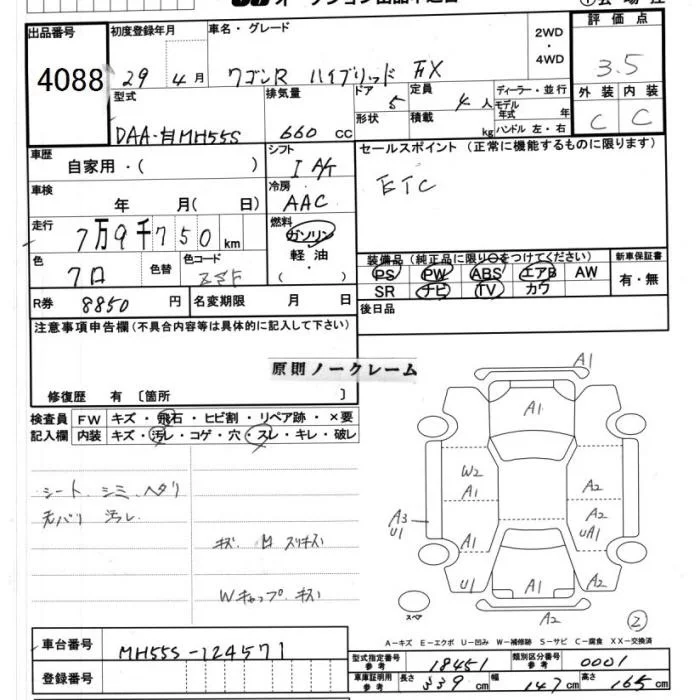 出品番号 初度登録年月 車名・グレード
4088 29年 4月 ワゴンR ハイブリッド FX 2WD・4WD
評価点 3.5
型式 排気量 ドア 5 定員 4人 ディーラー・並行
DAA-MH55S 660 cc 形状 積載 kg モデル年式 年 ハンドル 左・右
外装 内装
C C
車歴 自家用・( ) シフト I A/T
セールスポイント (正常に機能するものに限ります)
ETC
車検 年 月 ( 日) 冷房 AAC
走行 7万9千750km 燃料 ガソリン 軽油・( )
色 クロ 色替 色コード
装備品 (純正品に限り○をつけてください) 新車保証書
PS PW ABS エアB AW 有・無
SR ナビ TV カワ
R券 8850円 名変期限 月 日 後日品
注意事項申告欄 (不具合内容等は具体的に記入して下さい)
原則ノークレーム
修復歴 有 〔箇所 〕
検査員 FW キズ・飛石・ヒビ割・リペア跡・×要
記入欄 内装 キズ・汚レ・コゲ・穴・スレ・キレ・破レ
シート シミ ヘタリ
天バリ 汚レ
キズ 目 スリキズ
Wキャップ キズ
A1
A1
W2
A1
A2
A3
U1
A2
UA1
U1
A1
A2
A2
スペア
2
A-キズ E-エクボ U-凹み W-補修跡 S-サビ C-腐食 XX-交換済
車台番号 MH55S-124571
型式指定番号 参考 18451 類別区分番号 参考 0001
登録番号
車庫証明用 参考 長さ 339cm 幅 147cm 高さ 165cm